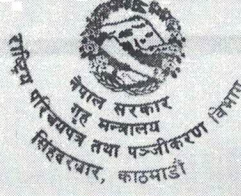 नेपाल सरकार
गृह मन्त्रालय
राष्ट्रिय परिचयपत्र तथा पञ्जीकरण विभाग
सिंहदरबार, काठमाडौं